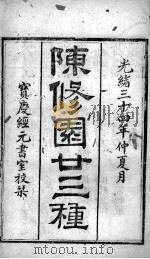 光緒三十四年仲夏月
陳修園廿三種
寶慶經元書室校栞